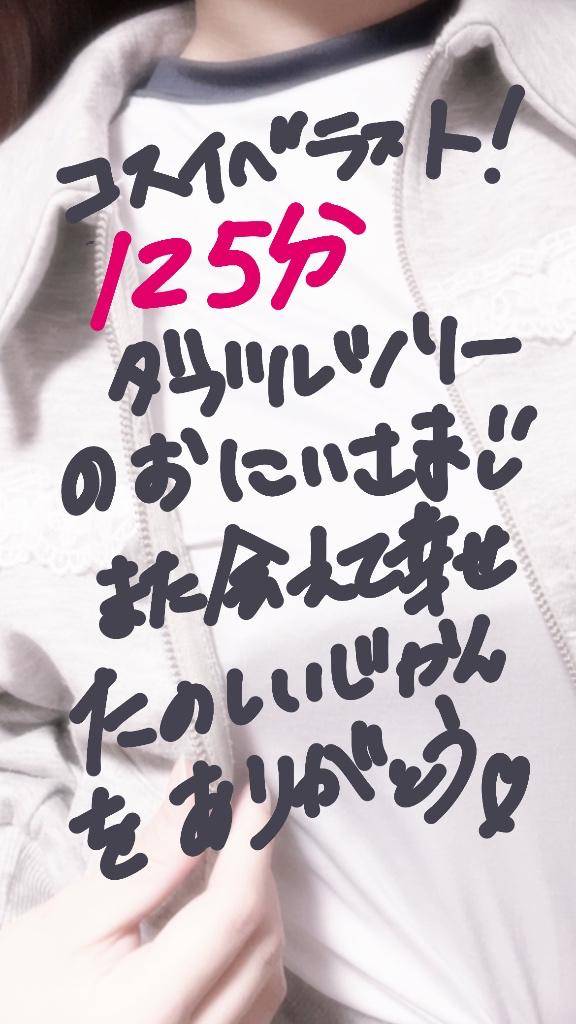 コスイベラスト!
125分
ダヴルツリー
のおにいさまじ
また会えて幸せ
たのしいじかん
をありがとう♡